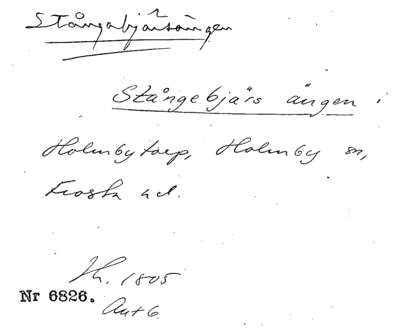 Stångabjärsängen
Stångebjärs ängen i
Holmbytorp, Holmby sn,
Frosta hd.
Th. 1805
Nr 6826.
Akt 6.